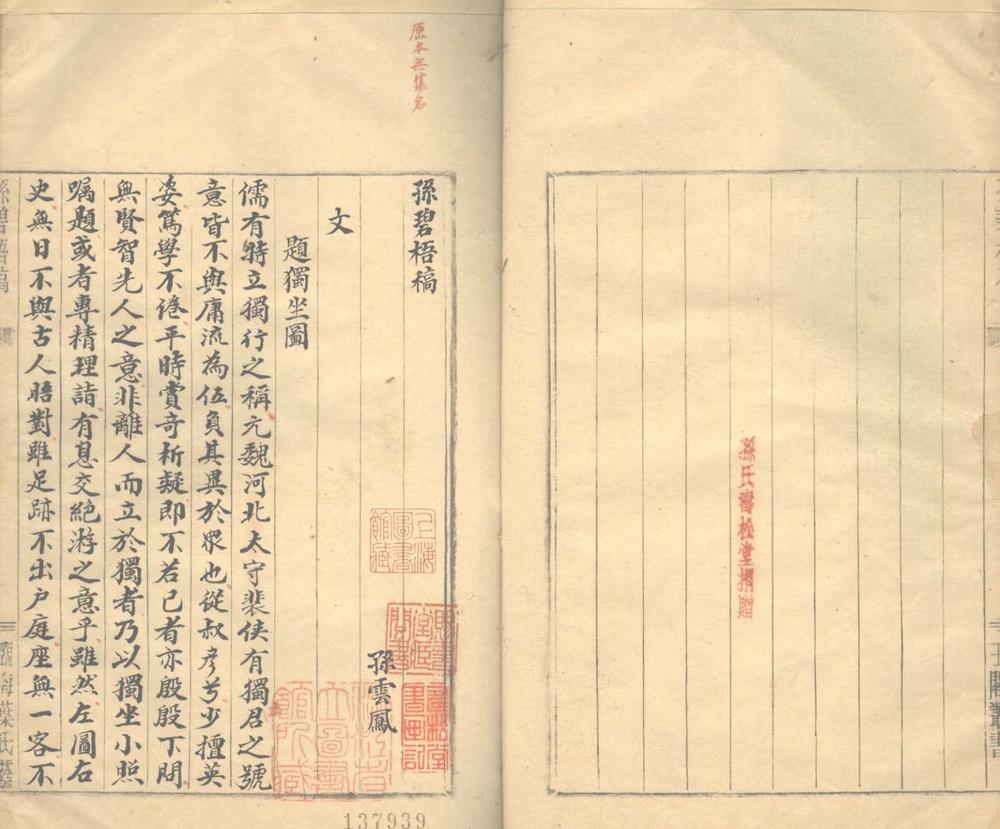 孫氏壽松堂捐贈
原本無集名
孫碧梧稿
孫雲鳳
文
題獨坐圖
儒有特立獨行之稱元魏河北太守裴俠有獨君之號
意皆不與庸流為伍負其異於眾也從叔彥兮少擅英
姿篤學不倦平時賞奇析疑即不若己者亦殷殷下問
無賢智先人之意非離人而立於獨者乃以獨坐小照
嘱題或者專精理詣有息交絕游之意乎雖然左圖右
史無日不與古人晤對雖足跡不出户庭座無一客不
孫碧梧稿
上海圖書館藏
137939